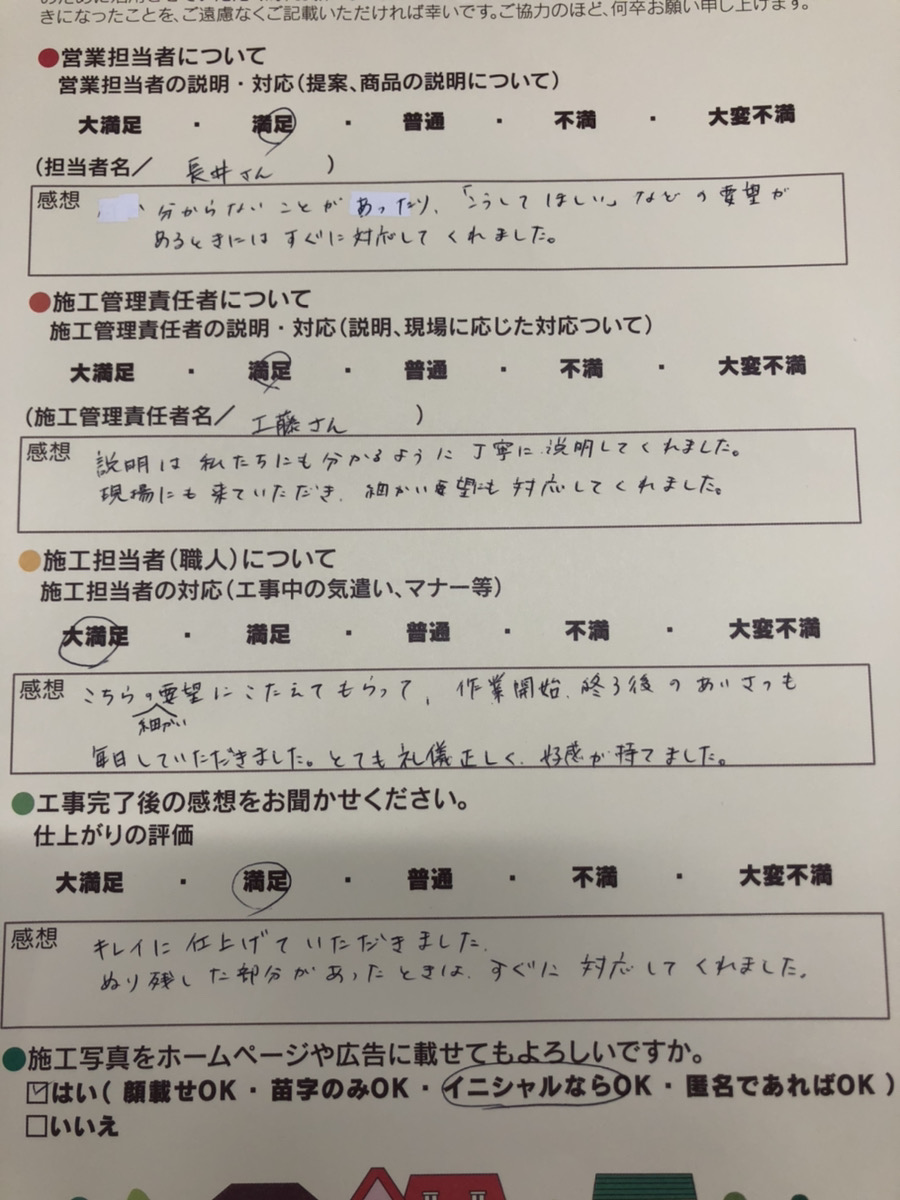 きになったことを、ご遠慮なくご記載いただければ幸いです。ご協力のほど、何卒お願い申し上げます。
●営業担当者について
営業担当者の説明・対応(提案、商品の説明について)
大満足 ・ 満足 ・ 普通 ・ 不満 ・ 大変不満
(担当者名／ 長井さん )
感想 分からないことがあったり、「こうしてほしい」などの要望が
あるときにはすぐに対応してくれました。
●施工管理責任者について
施工管理責任者の説明・対応(説明、現場に応じた対応ついて)
大満足 ・ 満足 ・ 普通 ・ 不満 ・ 大変不満
(施工管理責任者名／ 工藤さん )
感想 説明は私たちにも分かるように丁寧に説明してくれました。
現場にも来ていただき、細かい要望にも対応してくれました。
●施工担当者(職人)について
施工担当者の対応(工事中の気遣い、マナー等)
大満足 ・ 満足 ・ 普通 ・ 不満 ・ 大変不満
感想 こちらの要望にこたえてもらって、作業開始、終了後のあいさつも
細かい
毎日していただきました。とても礼儀正しく、好感が持てました。
●工事完了後の感想をお聞かせください。
仕上がりの評価
大満足 ・ 満足 ・ 普通 ・ 不満 ・ 大変不満
感想 キレイに仕上げていただきました。
ぬり残した部分があったときは、すぐに対応してくれました。
●施工写真をホームページや広告に載せてもよろしいですか。
☑はい( 顔載せOK ・ 苗字のみOK ・ イニシャルならOK ・ 匿名であればOK )
□いいえ